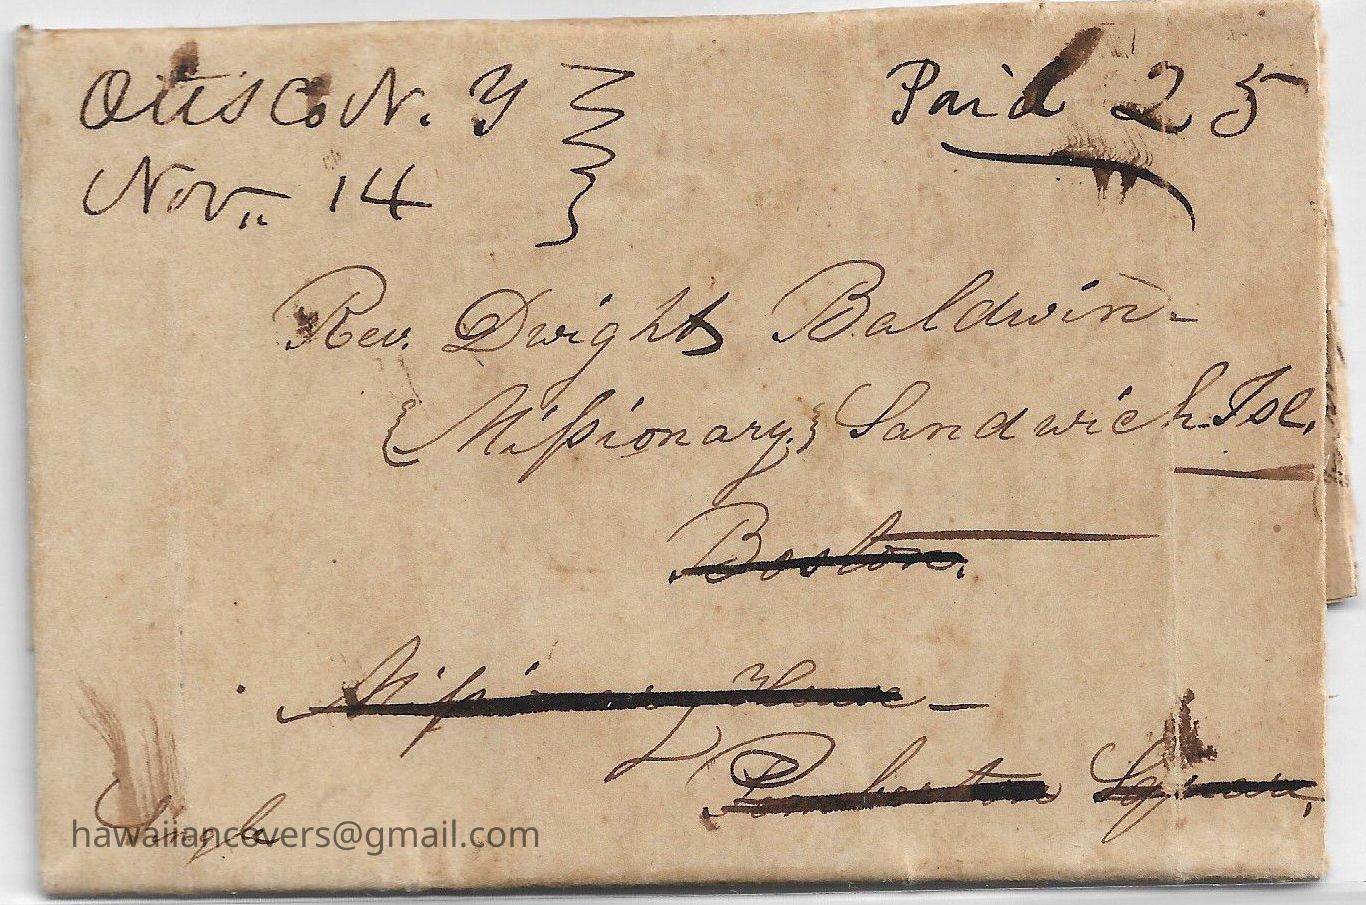 Otisco N. Y
Paid 25
Nov. 14
Rev. Dwight Baldwin
{Missionary} Sandwich Isl.
Boston.
Missionary House
Pemberton Square,
Single
hawaiiancovers@gmail.com